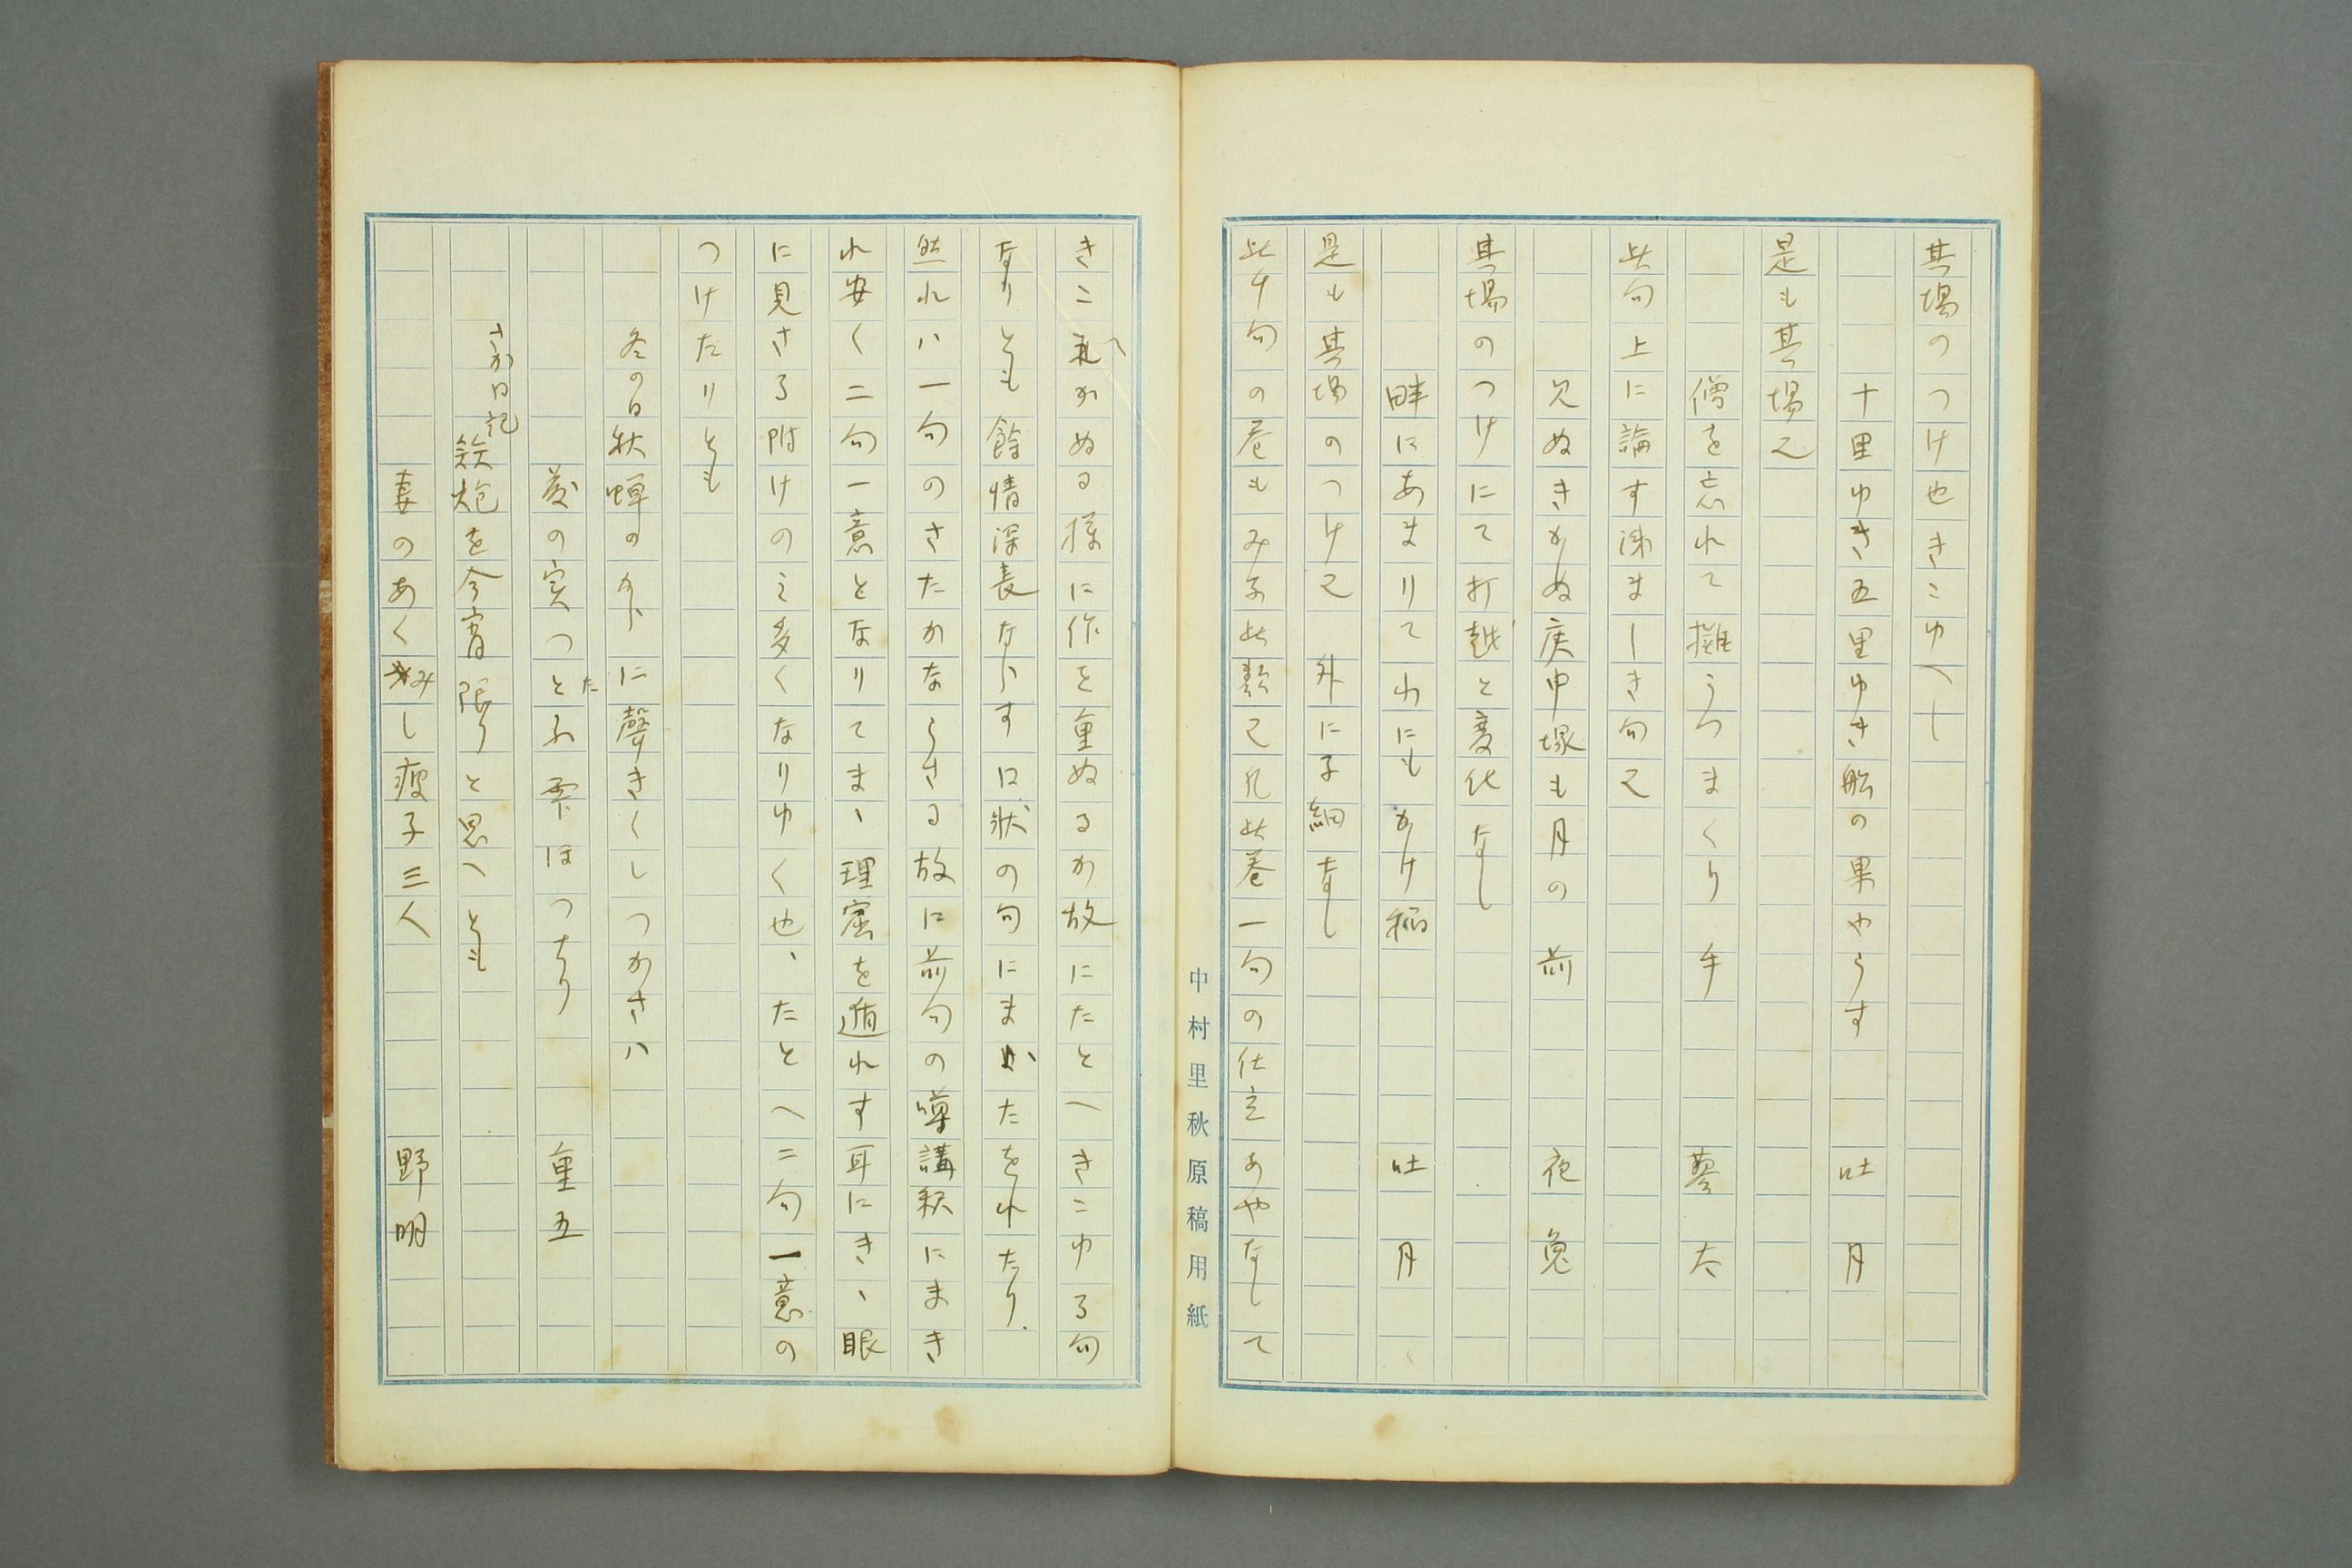 其場のつけ也きこゆへし
十里ゆき五里ゆき舩の果やらす 吐月
是も其場之
僧を忘れて攤うつまくり手 蓼太
此句上に論す凍ましき句之
見ぬきかぬ庚申塚も月の前 夜兔
其場のつけにて打越と変化なし
畔にあまりてわにもかけ稲 吐月
是も其場のつけ之 外に子細なし
此句の巻もみな此類之凡此巻一句の仕立あやなして
中村里秋原稿用紙
きこへかぬる様に作を重ぬるか故にたとへきこゆる句
なりとも餘情深長ならす口状の句にまかたをれたり
然れハ一句のさたかならさる故に前句の噂講釈にまき
れ安く二句一意となりてまゝ理窟を遁れす耳にきゝ眼
に見さる附けのミ多くなりゆく也、たとへ二句一意の
つけたりとも
冬の日 秋蝉のからに聲きくしつかさハ
藤の実つたふ雫ほつちり 重五
さか日記 鉄炮を今宵限りと思へとも
妻のあくみし瘦子三人 野明